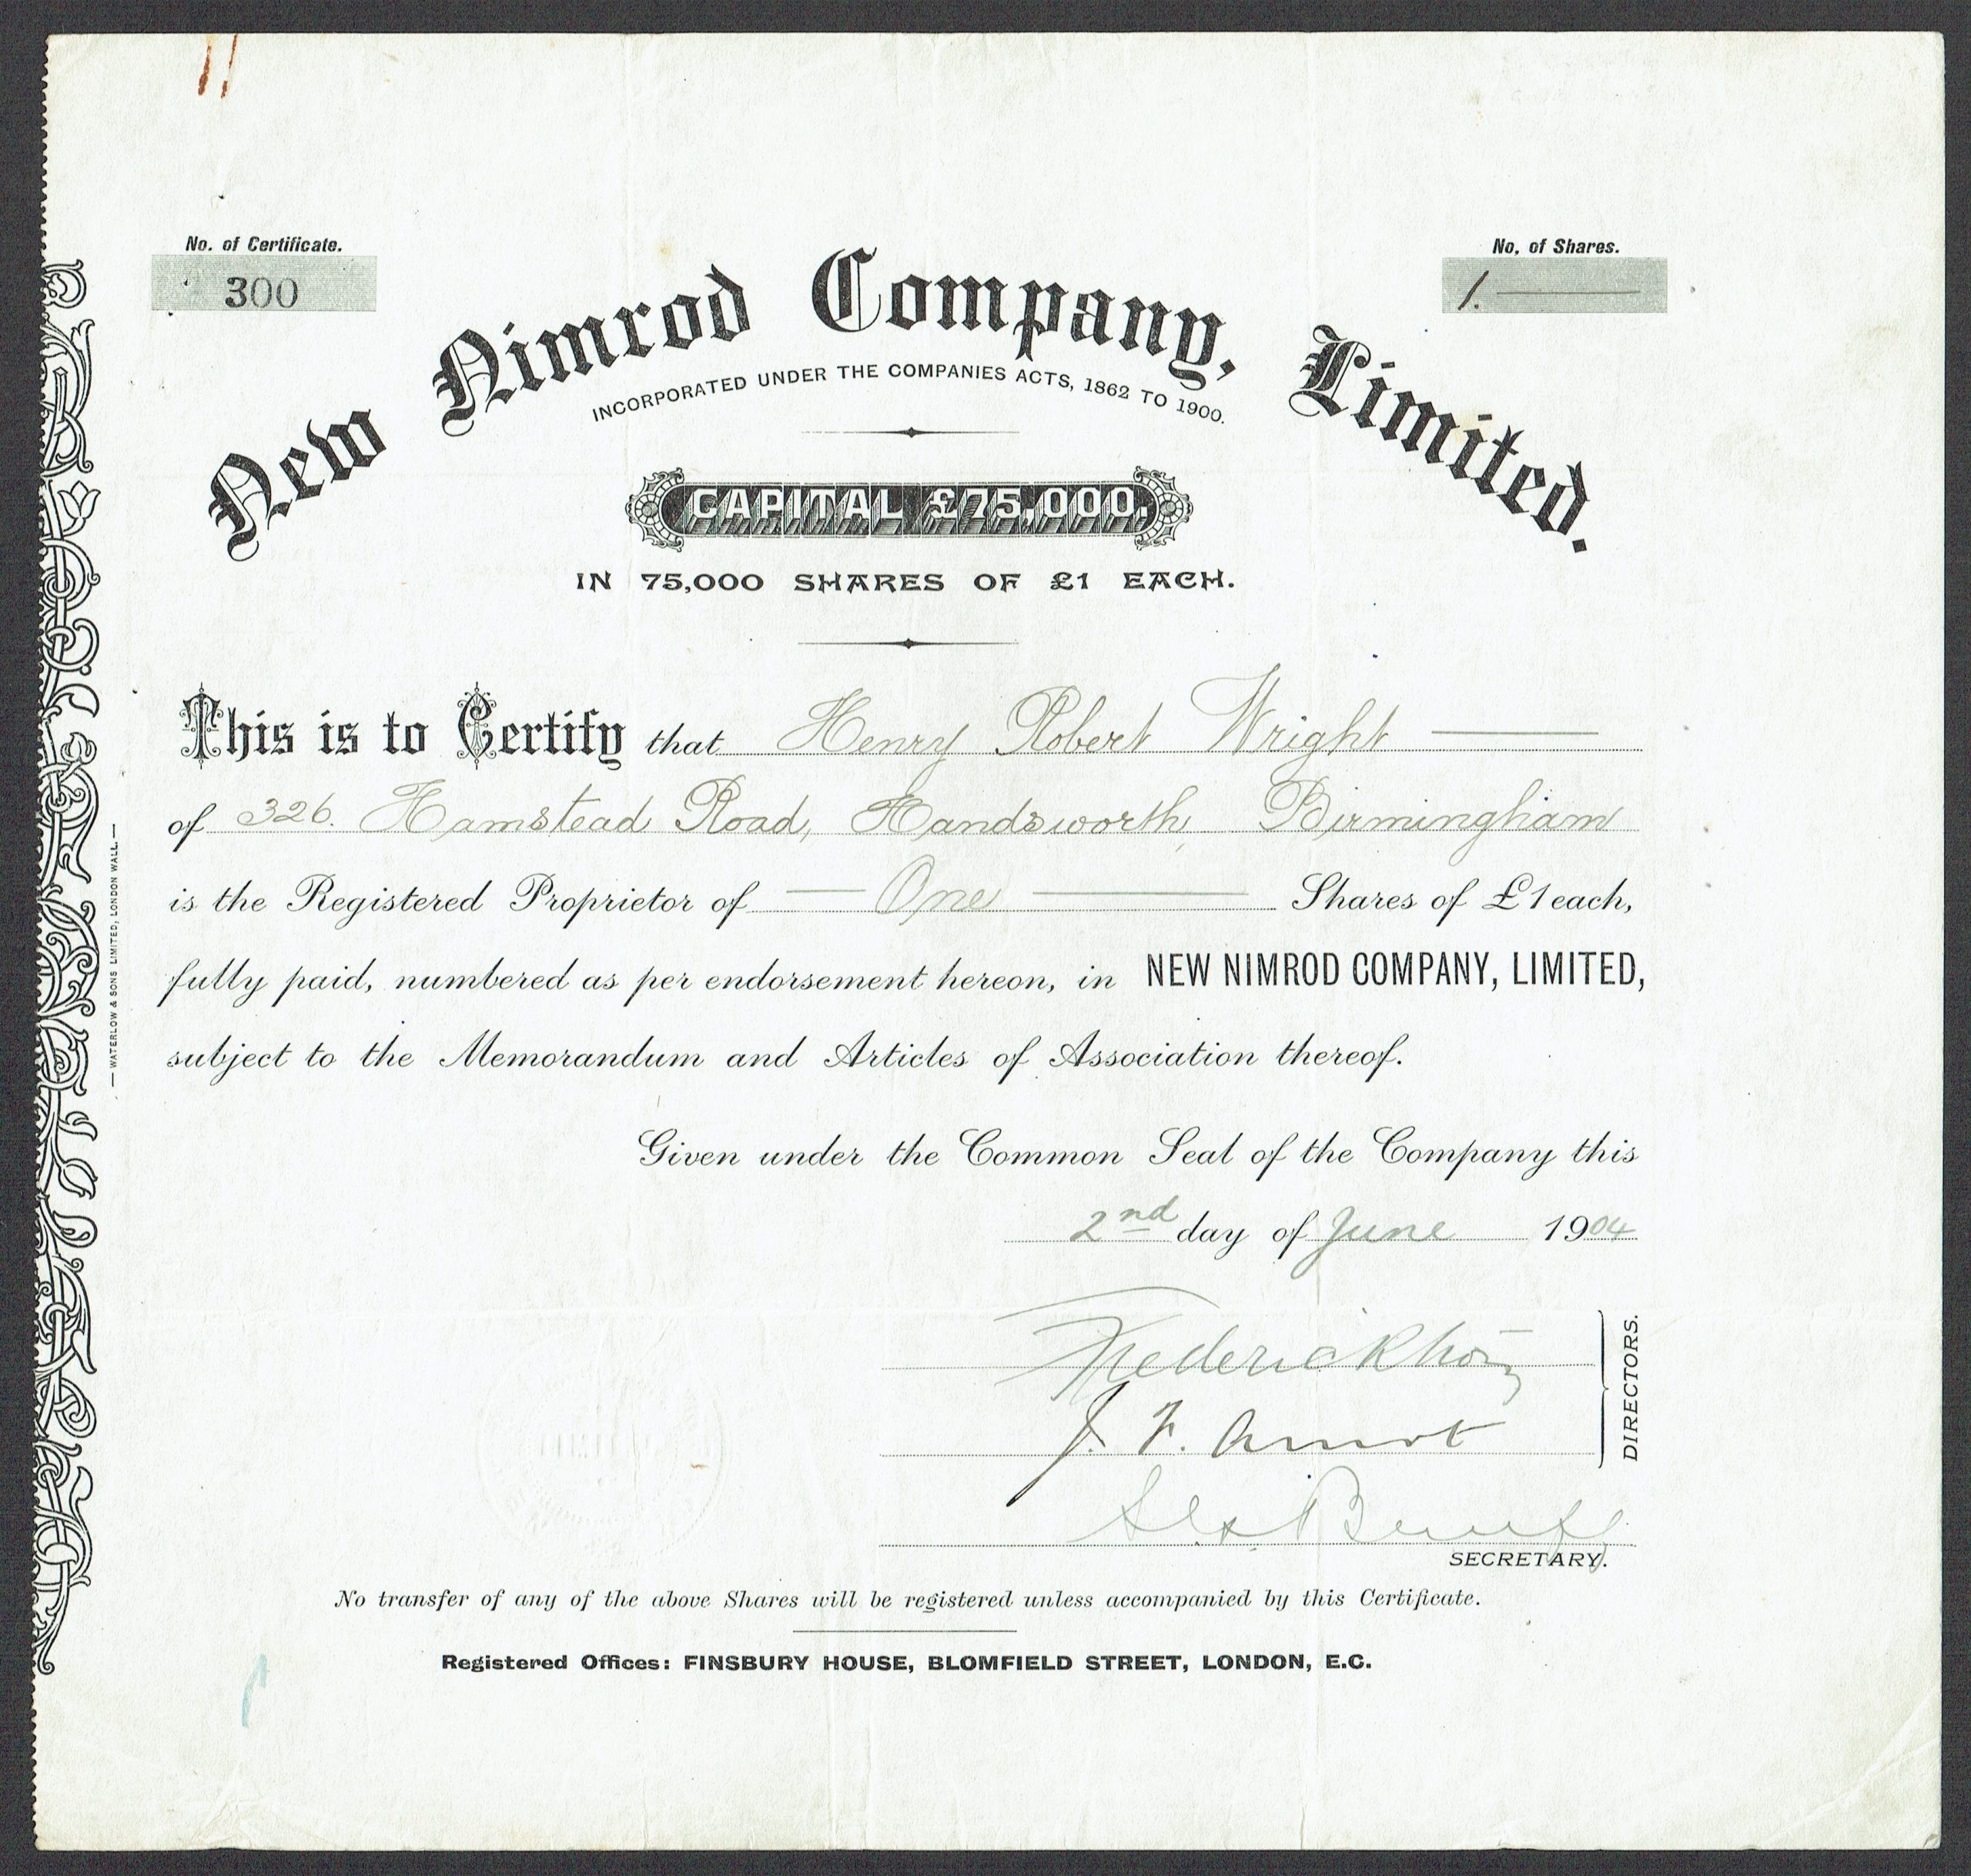 No. of Certificate.
300
No. of Shares.
1.
New Nimrod Company, Limited.
INCORPORATED UNDER THE COMPANIES ACTS, 1862 TO 1900.
CAPITAL £75,000.
IN 75,000 SHARES OF £1 EACH.
This is to Certify that Henry Robert Wright
of 326. Hamstead Road, Handsworth, Birmingham
is the Registered Proprietor of One Shares of £1 each,
fully paid, numbered as per endorsement hereon, in NEW NIMROD COMPANY, LIMITED,
subject to the Memorandum and Articles of Association thereof.
Given under the Common Seal of the Company this
2nd day of June 1904
Frederick
J. F.
DIRECTORS.
SECRETARY.
No transfer of any of the above Shares will be registered unless accompanied by this Certificate.
Registered Offices: FINSBURY HOUSE, BLOMFIELD STREET, LONDON, E.C.
WATERLOW & SONS LIMITED, LONDON WALL.